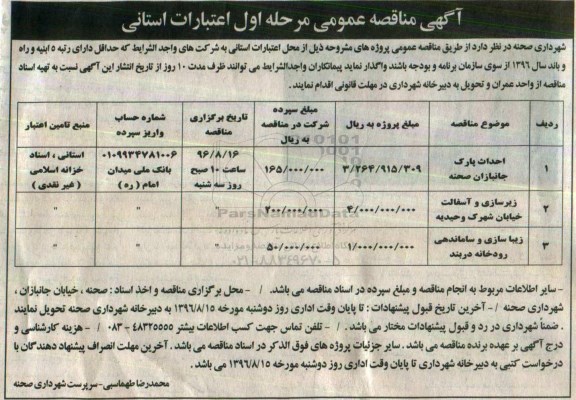 آگهی مناقصه عمومی مرحله اول اعتبارات استانی
شهرداری صحنه در نظر دارد از طریق مناقصه عمومی پروژه های مشروحه ذیل از محل اعتبارات استانی به شرکت های واجد الشرایط که حداقل دارای رتبه ۵ ابنیه و راه
و باند سال ۱۳۹۶ از سوی سازمان برنامه و بودجه باشند واگذار نماید پیمانکاران واجدالشرایط می توانند ظرف مدت ۱۰ روز از تاریخ انتشار این آگهی نسبت به تهیه اسناد
مناقصه از واحد عمران و تحویل به دبیرخانه شهرداری در مهلت قانونی اقدام نمایند.
ردیف موضوع مناقصه مبلغ پروژه به ریال مبلغ سپرده شرکت در مناقصه به ریال تاریخ برگزاری مناقصه شماره حساب واریز سپرده منبع تامین اعتبار
۱ احداث پارک جانبازان صحنه ۳/۲۶۴/۹۱۵/۳۰۹ ۱۶۵/۰۰۰/۰۰۰ ۹۶/۸/۱۶ ساعت ۱۰ صبح روز سه شنبه ۰۱۰۹۹۳۴۷۸۱۰۰۶ بانک ملی میدان امام (ره) استانی ، اسناد خزانه اسلامی (غیر نقدی)
۲ زیرسازی و آسفالت خیابان شهرک وحیدیه ۴/۰۰۰/۰۰۰/۰۰۰ ۲۰۰/۰۰۰/۰۰۰ " " "
۳ زیبا سازی و ساماندهی رودخانه دربند ۱/۰۰۰/۰۰۰/۰۰۰ ۵۰/۰۰۰/۰۰۰ " " "
– سایر اطلاعات مربوط به انجام مناقصه و مبلغ سپرده در اسناد مناقصه می باشد. / – محل برگزاری مناقصه و اخذ اسناد : صحنه ، خیابان جانبازان ،
شهرداری صحنه / – آخرین تاریخ قبول پیشنهادات : تا پایان وقت اداری روز دوشنبه مورخه ۱۳۹۶/۸/۱۵ به دبیرخانه شهرداری صحنه تحویل نمایند
. ضمناً شهرداری در رد و قبول پیشنهادات مختار می باشد. / – تلفن تماس جهت کسب اطلاعات بیشتر ۴۸۳۲۵۵۵۵ – ۰۸۳ / – هزینه کارشناسی و
درج آگهی بر عهده برنده مناقصه می باشد . سایر جزئیات پروژه های فوق الذکر در اسناد مناقصه می باشد . آخرین مهلت انصراف پیشنهاد دهندگان با
درخواست کتبی به دبیرخانه شهرداری تا پایان وقت اداری روز دوشنبه مورخه ۱۳۹۶/۸/۱۵ می باشد .
محمدرضا طهماسبی-سرپرست شهرداری صحنه
ParsNamadData
۰۲۱-۸۸۳۴۹۶۷۰-۵